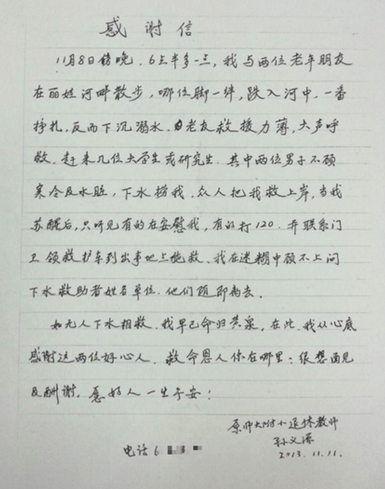 感谢信
11月8日傍晚，6点半多一点，我与两位老年朋友
在丽娃河畔散步，哪位脚一绊，跌入河中，一番
挣扎，反而下沉溺水，老友救援力薄，大声呼
救，赶来几位大学生或研究生，其中两位男子不顾
寒冷及水脏，下水捞我，众人把我救上岸，当我
苏醒后，只听见有的在安慰我，有的打120，并联系门
卫领救护车到出事地点施救，我在迷糊中顾不上问
下水救助者姓名单位，他们随即离去。
如无人下水相救，我早已命归黄泉，在此，我从心底
感谢这两位好心人，救命恩人你在哪里：很想面见
及酬谢，愿好人一生平安！
原师大附小退休教师
孙文
2013.11.11.
电话6